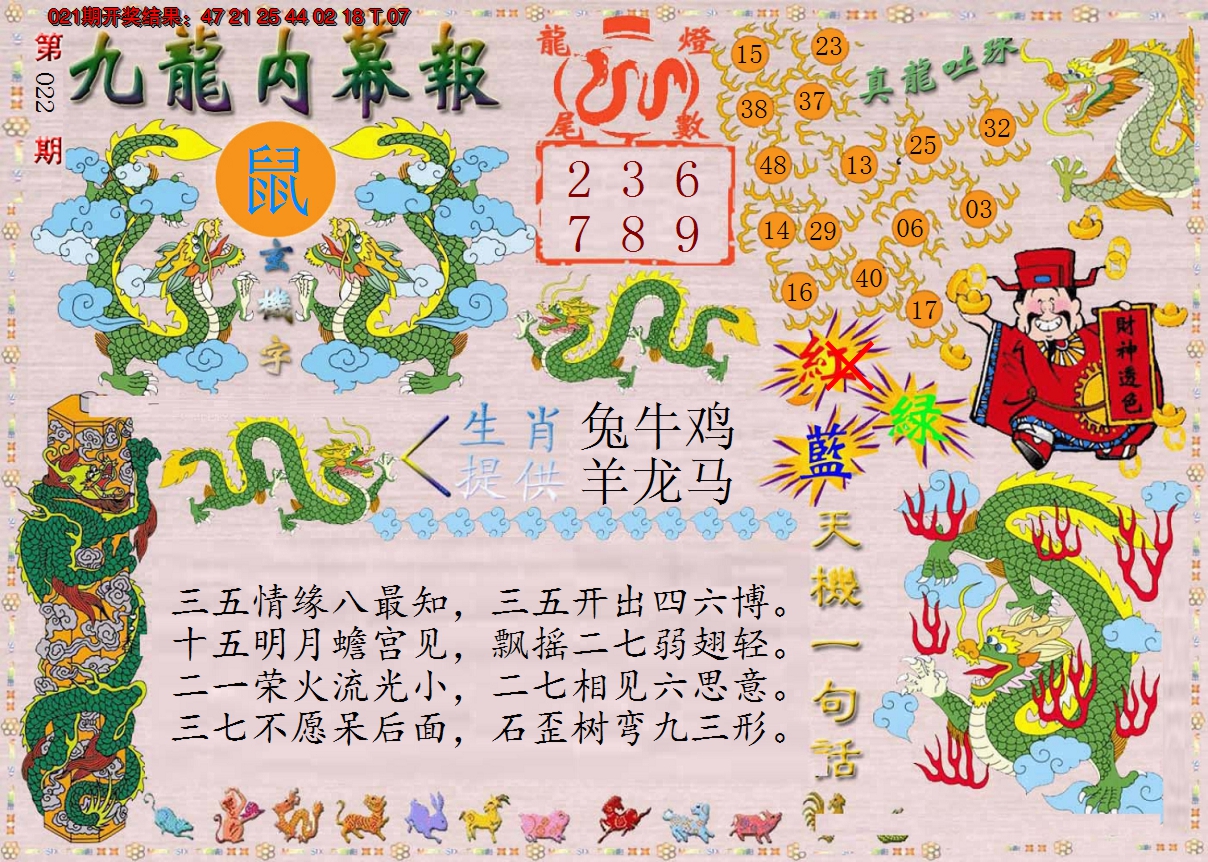 021期开奖结果：47 21 25 44 02 18 T 07
第022期
九龍内幕報
鼠
玄機字
龍燈
尾數
2 3 6
7 8 9
真龍吐珠
15
23
38
37
25
32
48
13
14
29
06
03
16
40
17
財神透色
紅
绿
藍
生肖提供
兔牛鸡
羊龙马
三五情缘八最知，三五开出四六博。
十五明月蟾宫见，飘摇二七弱翅轻。
二一荣火流光小，二七相见六思意。
三七不愿呆后面，石歪树弯九三形。
天機一句话